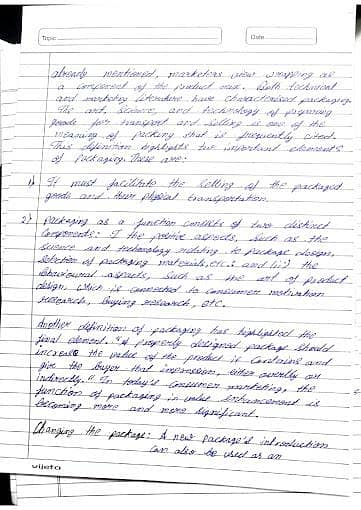 Topic
Date
already mentioned, marketers view wrapping as
a component of the product mix. Both technical
and marketing literature have characterised packaging.
The art, science, and technology of preparing
goods for transport and selling is one of the
meaning of packing that is frequently cited.
This definition highlights two important elements
of packaging. These are:
1) It must facilitate the selling of the packaged
goods and their physical transportation.
2) Packaging as a function consists of two distinct
components: I the positive aspects, such as the
science and technology relating to package design,
selection of packaging materials, etc.; and (ii) the
behavioural aspects, such as the art of product
design, which is connected to consumer motivation
research, buying research, etc.
Another definition of packaging has highlighted the
final element. "A properly designed package should
increase the value of the product it contains and
give the buyer that impression, either overtly or
indirectly." In today's consumer marketing, the
function of packaging in value enhancement is
becoming more and more significant.
Changing the package: A new package's introduction
can also be used as an
vijeta